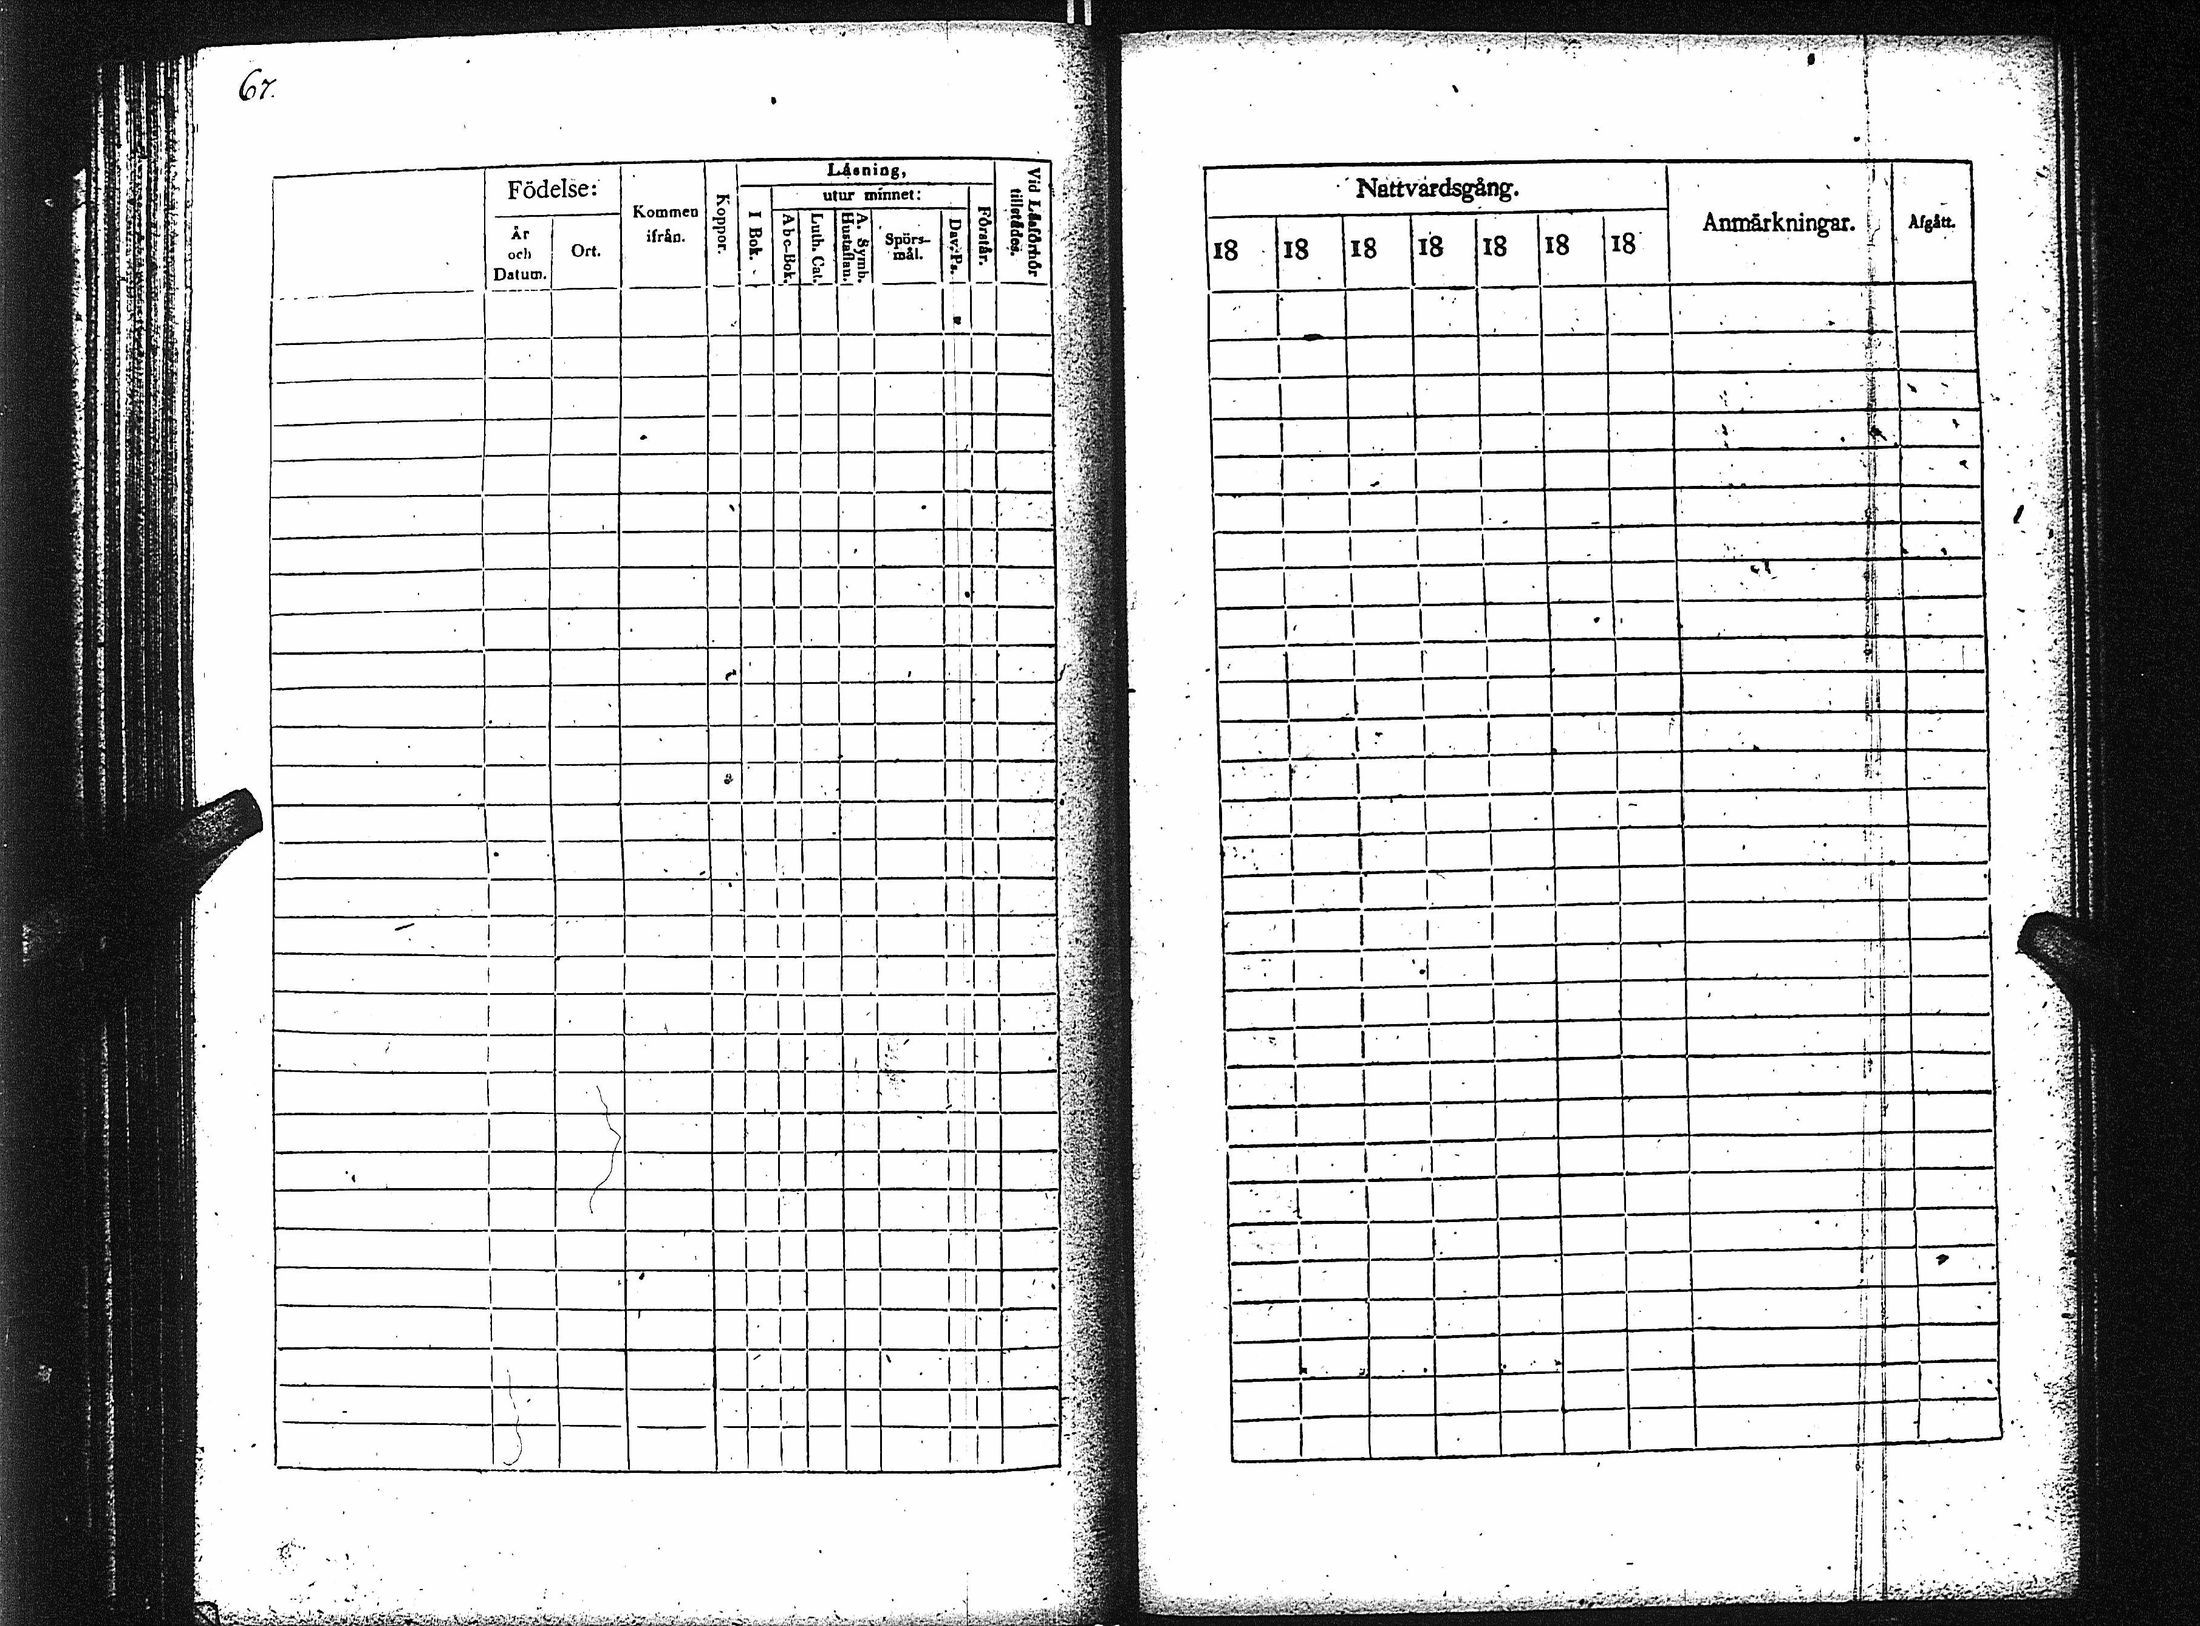 67.
Födelse:
År
och
Datum.
Ort.
Kommen
ifrån.
Koppor.
Läsning,
I Bok.
utur minnet:
Abc-Bok.
Luth. Cat.
A. Symb.
Hustaflan.
Spörs-
mål.
Dav. Ps.
Förstår.
Vid Läsförhör
tillstädes.
Nattvardsgång.
18 18 18 18 18 18 18
Anmärkningar.
Afgått.